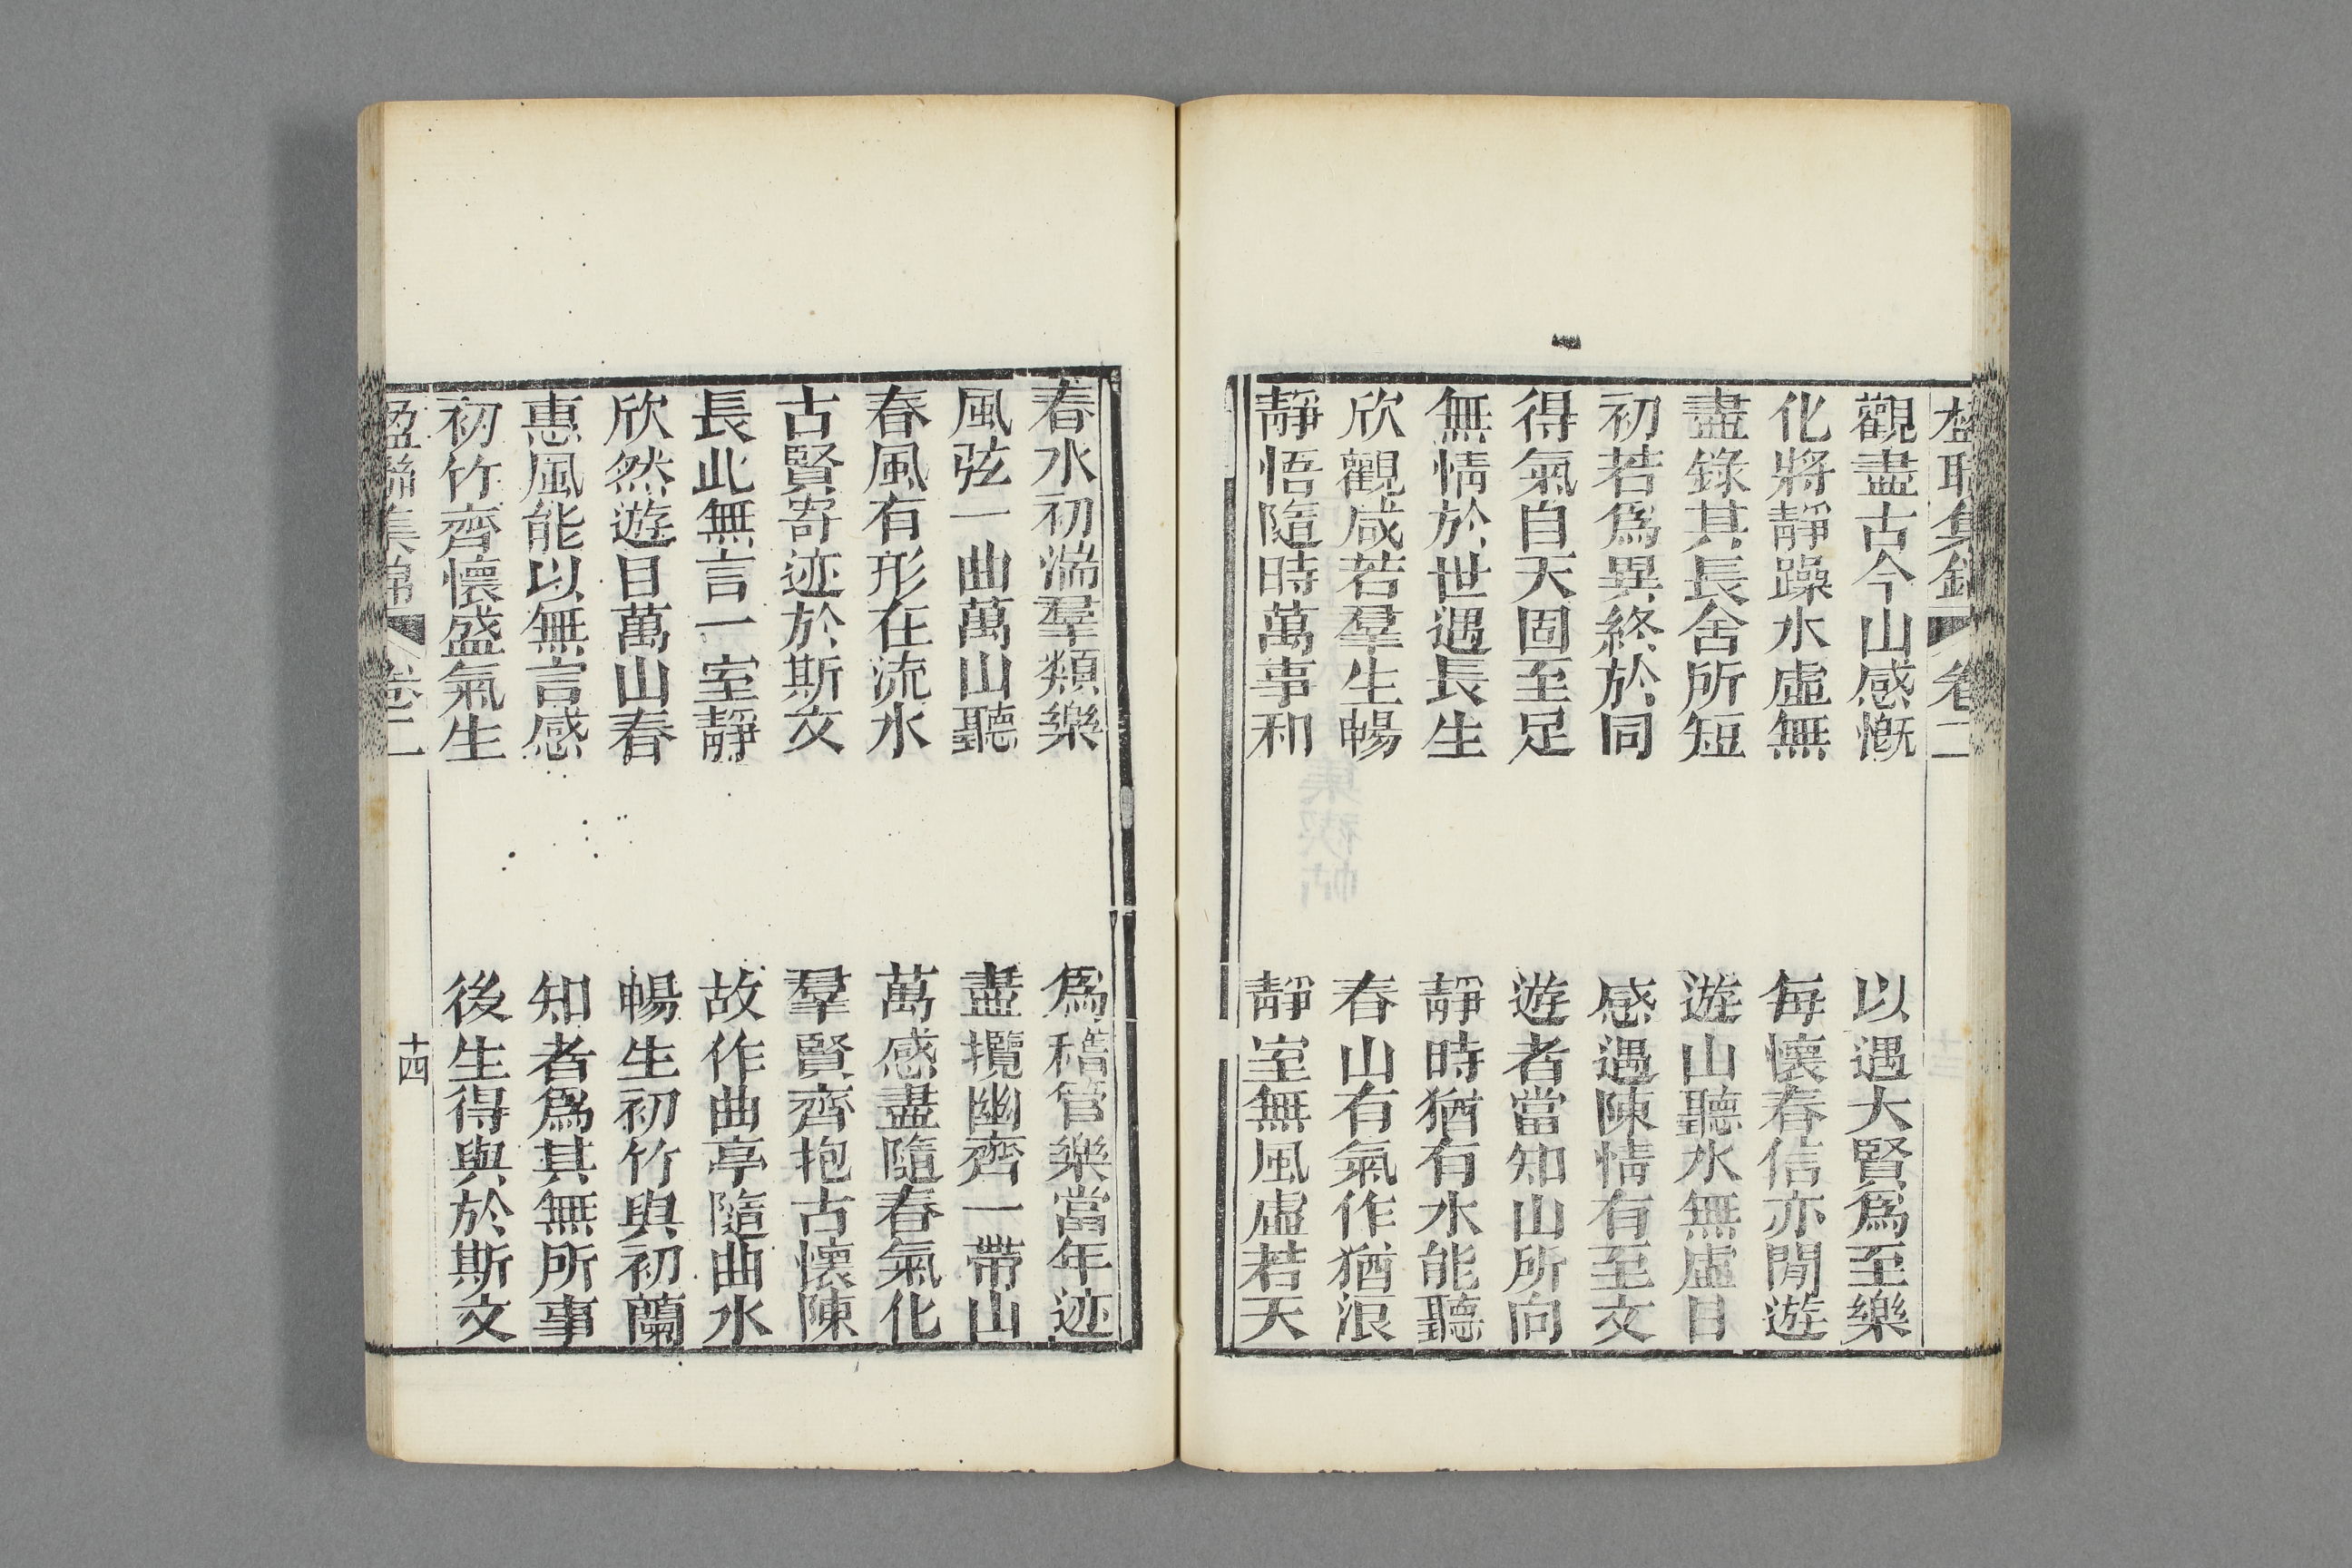 楹聯集錦 卷二
觀盡古今山感慨 以遇大賢爲至樂
化將靜躁水虛無 每懷春信亦閒遊
盡錄其長舍所短 遊山聽水無虛日
初若爲異終於同 感遇陳情有至文
得氣自天固至足 遊者當知山所向
無情於世遇長生 靜時猶有水能聽
欣觀咸若羣生暢 春山有氣作猶浪
靜悟隨時萬事和 靜室無風虛若天
春水初湍羣類樂 爲稽管樂當年迹
風弦一曲萬山聽 盡攬幽齊一帶山
春風有形在流水 萬感盡隨春氣化
古賢寄迹於斯文 羣賢齊抱古懷陳
長此無言一室靜 故作曲亭隨曲水
欣然遊目萬山春 暢生初竹與初蘭
惠風能以無言感 知者爲其無所事
初竹齊懷盛氣生 後生得與於斯文
楹聯集錦 卷二 十四